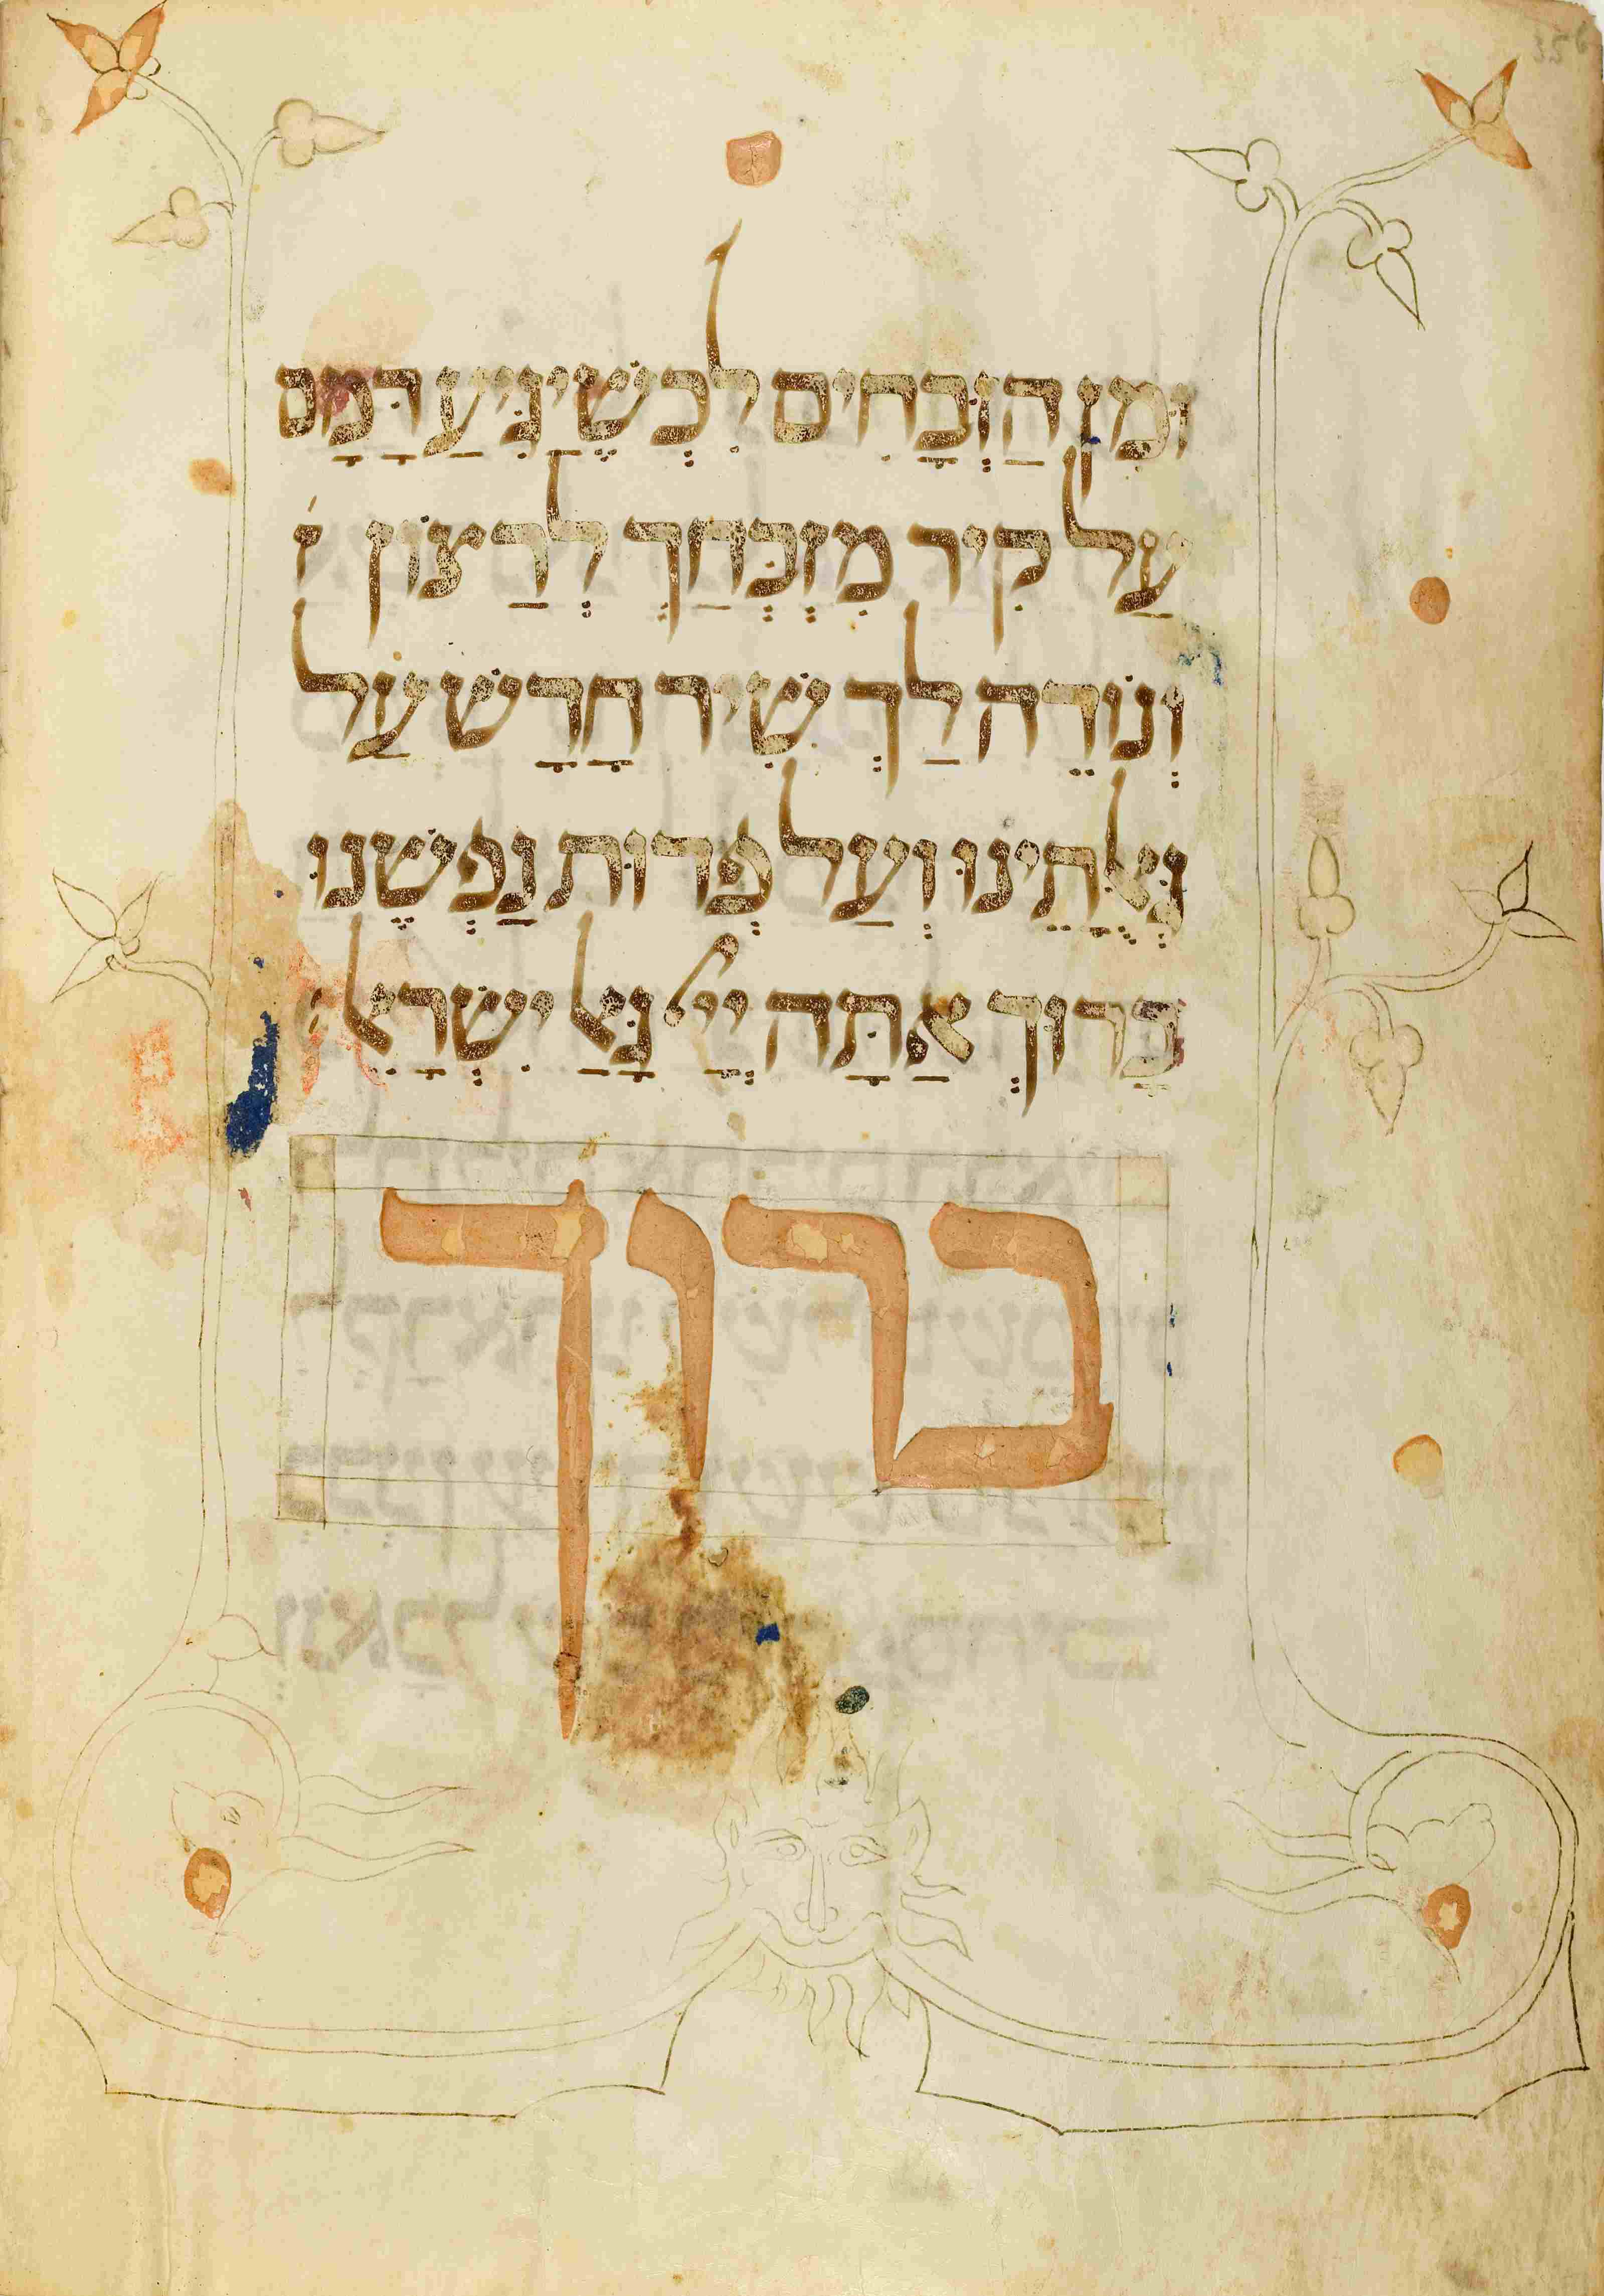 וּמִן הַזְּבָחִים לִכְשֶׁיַגִּיעַ דָּמָם
עַל קִיר מִזְבְּחַךְ לְרַצוֹן ו
וְנוֹדֵה לַךְ שִׁיר חָדָשׁ עַל
גְּאֻלָּתֵינוּ וְעַל פְּדוּת נַפְשֵׁנוּ
בָּרוּךְ אַתָּה יְיָ גָּאַל יִשְׂרָאֵל
ברוך